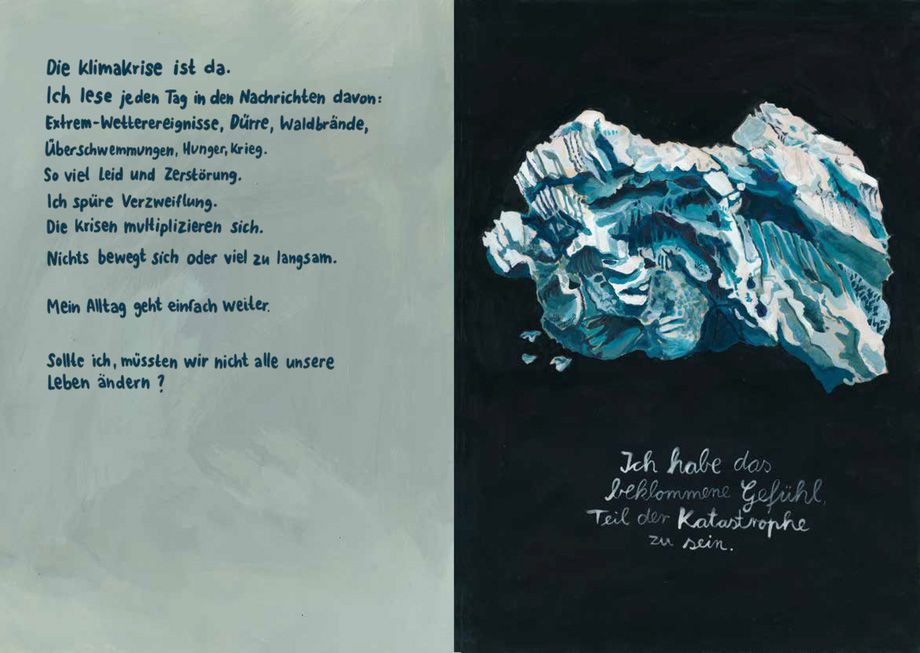 Die Klimakrise ist da.
Ich lese jeden Tag in den Nachrichten davon:
Extrem-Wetterereignisse, Dürre, Waldbrände,
Überschwemmungen, Hunger, Krieg.
So viel Leid und Zerstörung.
Ich spüre Verzweiflung.
Die Krisen multiplizieren sich.
Nichts bewegt sich oder viel zu langsam.
Mein Alltag geht einfach weiter.
Sollte ich, müssten wir nicht alle unsere
Leben ändern?
Ich habe das
beklommene Gefühl,
Teil der Katastrophe
zu sein.